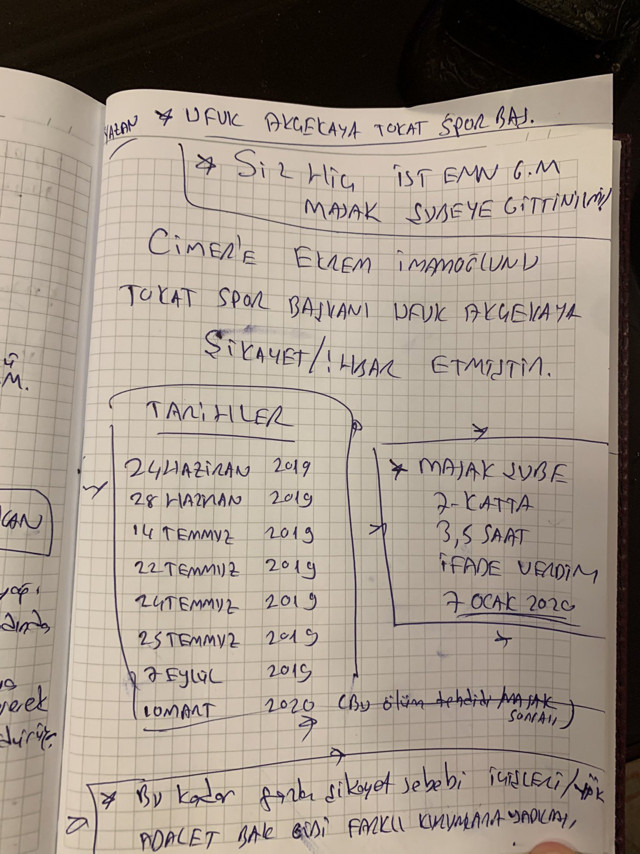 YAZAN * UFUK AKÇEKAYA TOKAT SPOR BAŞ.
* SİZ HİÇ İST EMN G.M
MAŞAK ŞUBEYE GİTTİNİZMİ
CİMER'E EKREM İMAMOĞLUNU
TOKAT SPOR BAŞKANI UFUK AKÇEKAYA
ŞİKAYET/İHBAR ETMİŞTİR.
TARİHLER
24 HAZİRAN 2019
28 HAZİRAN 2019
14 TEMMUZ 2019
22 TEMMUZ 2019
24 TEMMUZ 2019
25 TEMMUZ 2019
7 EYLÜL 2019
10 MART 2020 (Bu ölüm tehdidi MAŞAK
SONRASI)
* MAŞAK ŞUBE
7-KATTA
3,5 SAAT
İFADE VERDİM
7 OCAK 2020
* Bu kadar fazla şikayet sebebi İÇİŞLERİ/
ADALET BAK GİBİ FARKLI KURUMLARA
ü
M.
CAN